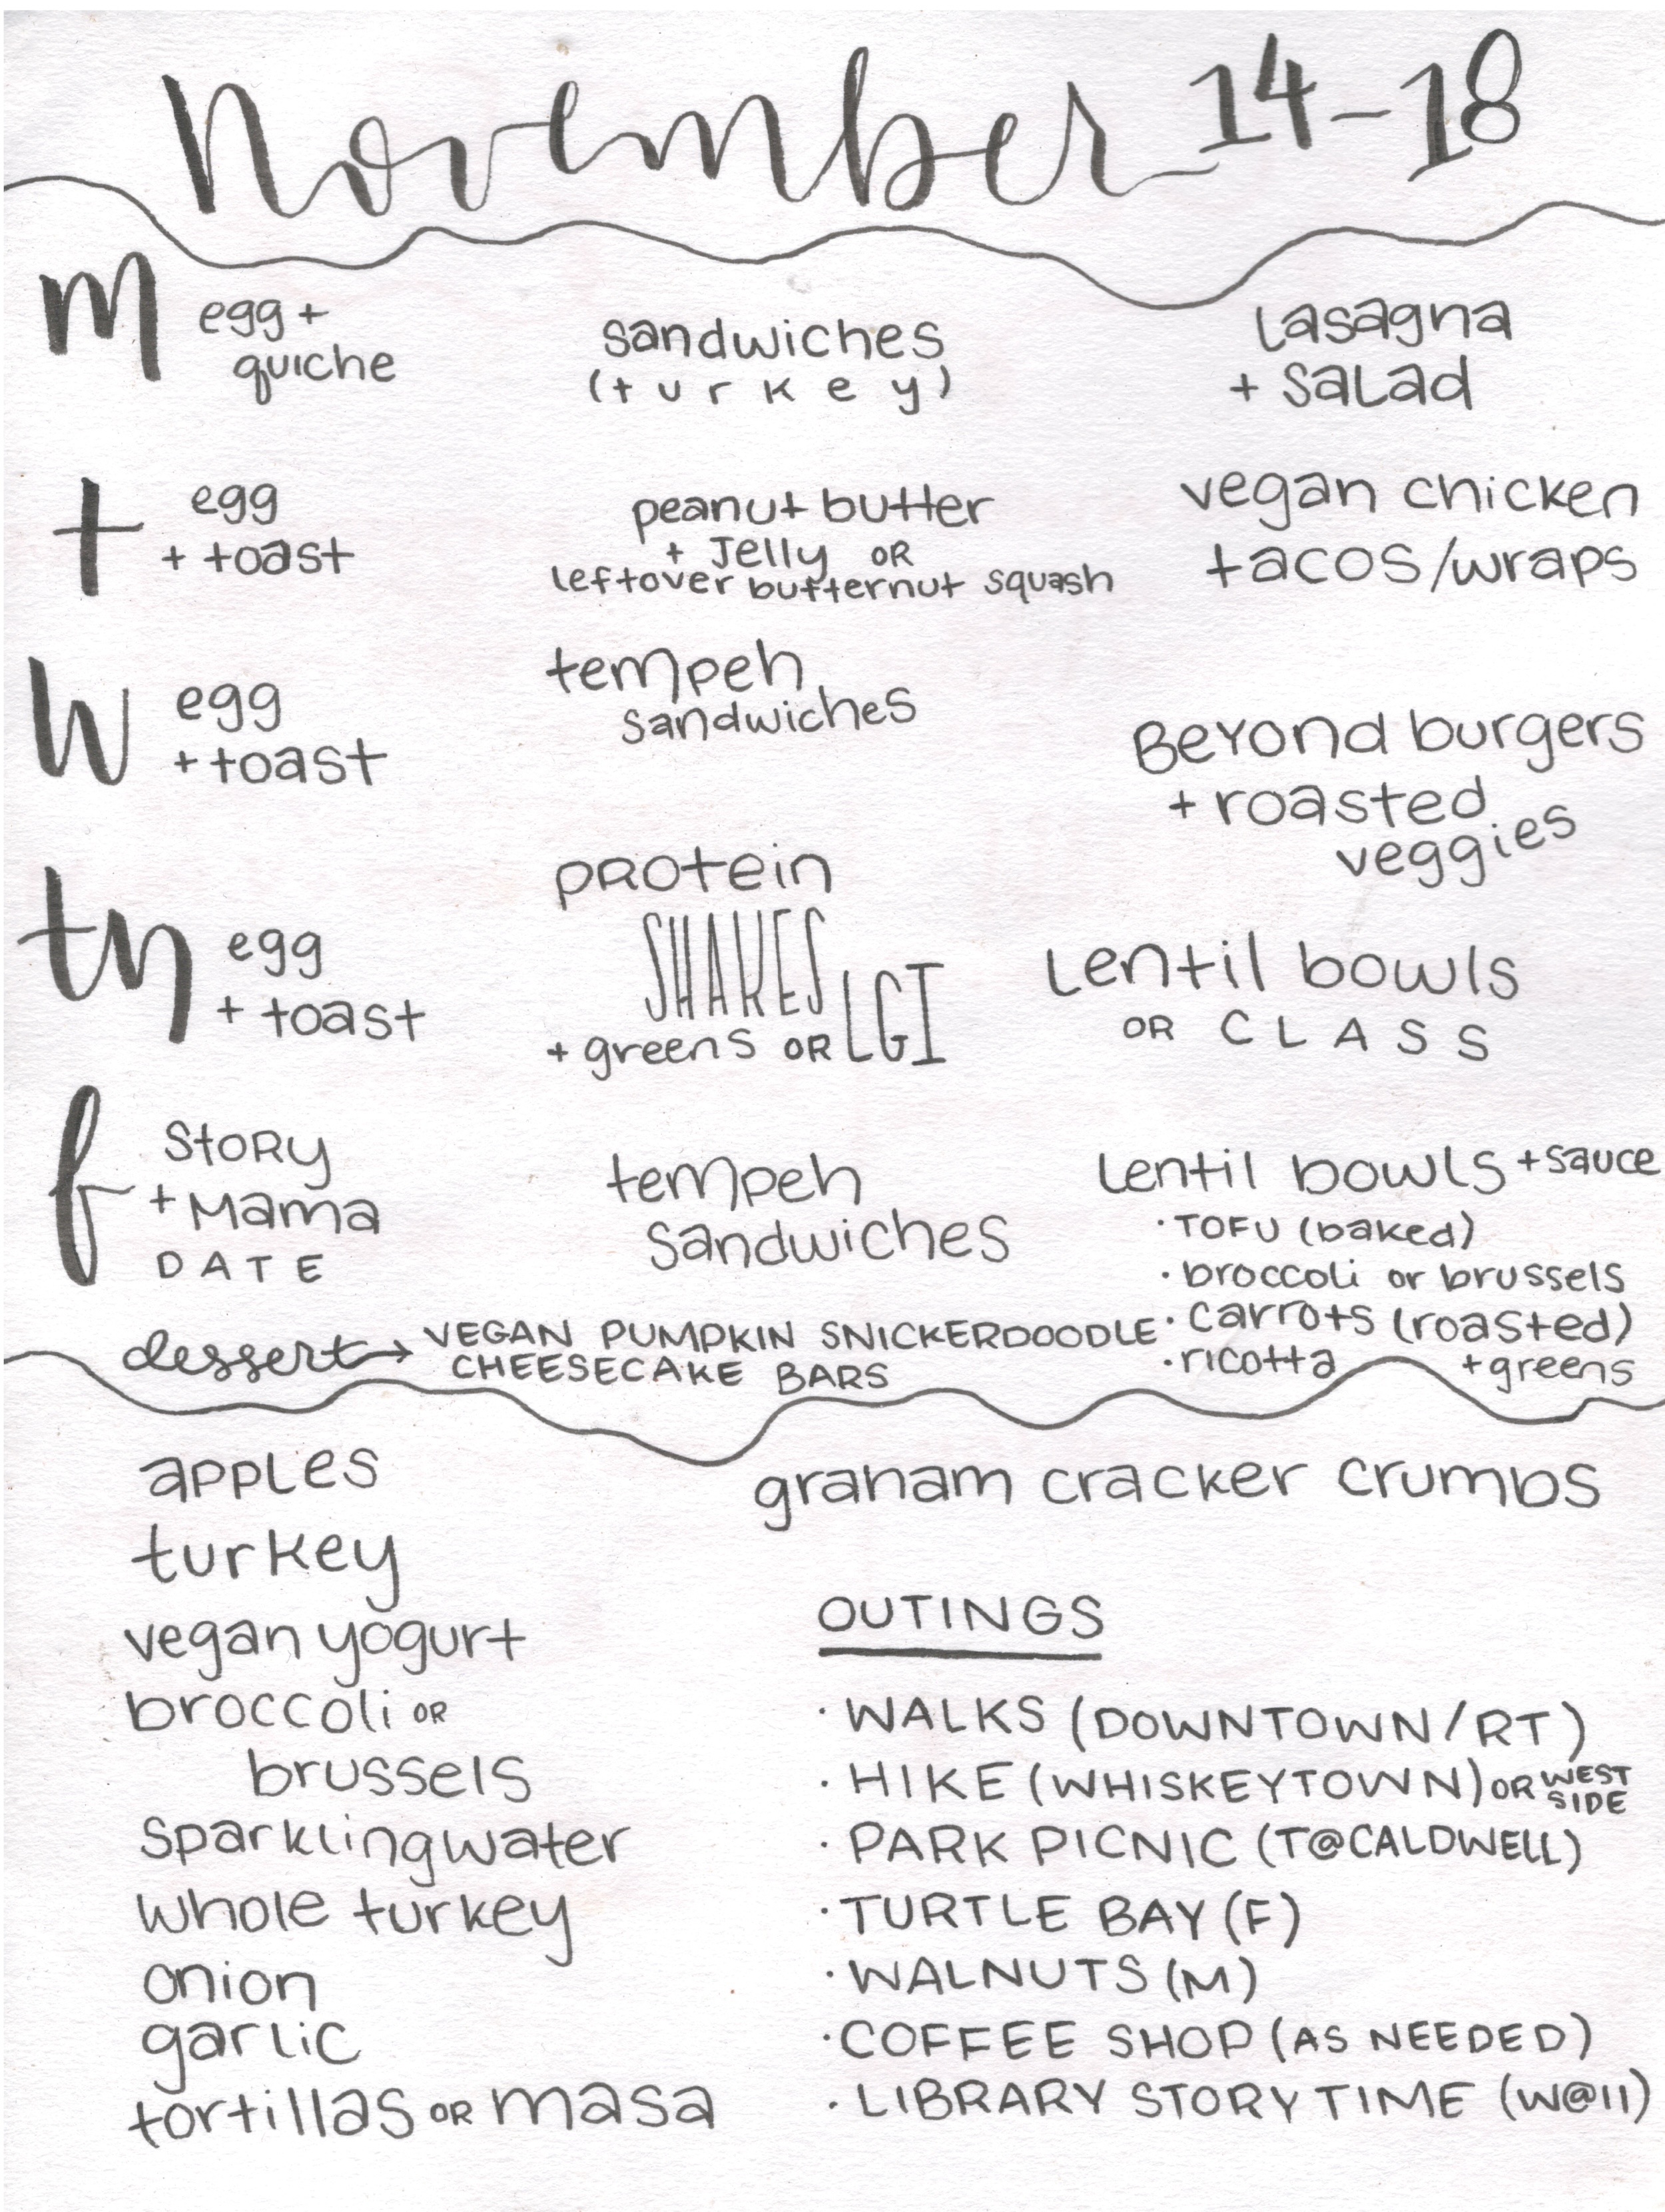 November 14-18
M
egg +
quiche
sandwiches
(turkey)
Lasagna
+ salad
t
egg
+ toast
peanut butter
+ Jelly OR
leftover butternut squash
vegan chicken
tacos/wraps
W
egg
+ toast
tempeh
sandwiches
Beyond burgers
+ roasted
veggies
th
egg
+ toast
protein
SHAKES
+ greens OR LGI
Lentil bowls
OR CLASS
f
STORY
+ Mama
DATE
tempeh
sandwiches
Lentil bowls + sauce
· TOFU (baked)
· broccoli or brussels
· carrots (roasted)
· ricotta + greens
dessert → VEGAN PUMPKIN SNICKERDOODLE
CHEESECAKE BARS
apples
turkey
vegan yogurt
broccoli OR
brussels
sparkling water
whole turkey
onion
garlic
tortillas OR masa
graham cracker crumbs
OUTINGS
· WALKS (DOWNTOWN/RT)
· HIKE (WHISKEYTOWN) OR WEST
SIDE
· PARK PICNIC (T@CALDWELL)
· TURTLE BAY (F)
· WALNUTS (M)
· COFFEE SHOP (AS NEEDED)
· LIBRARY STORY TIME (W@11)